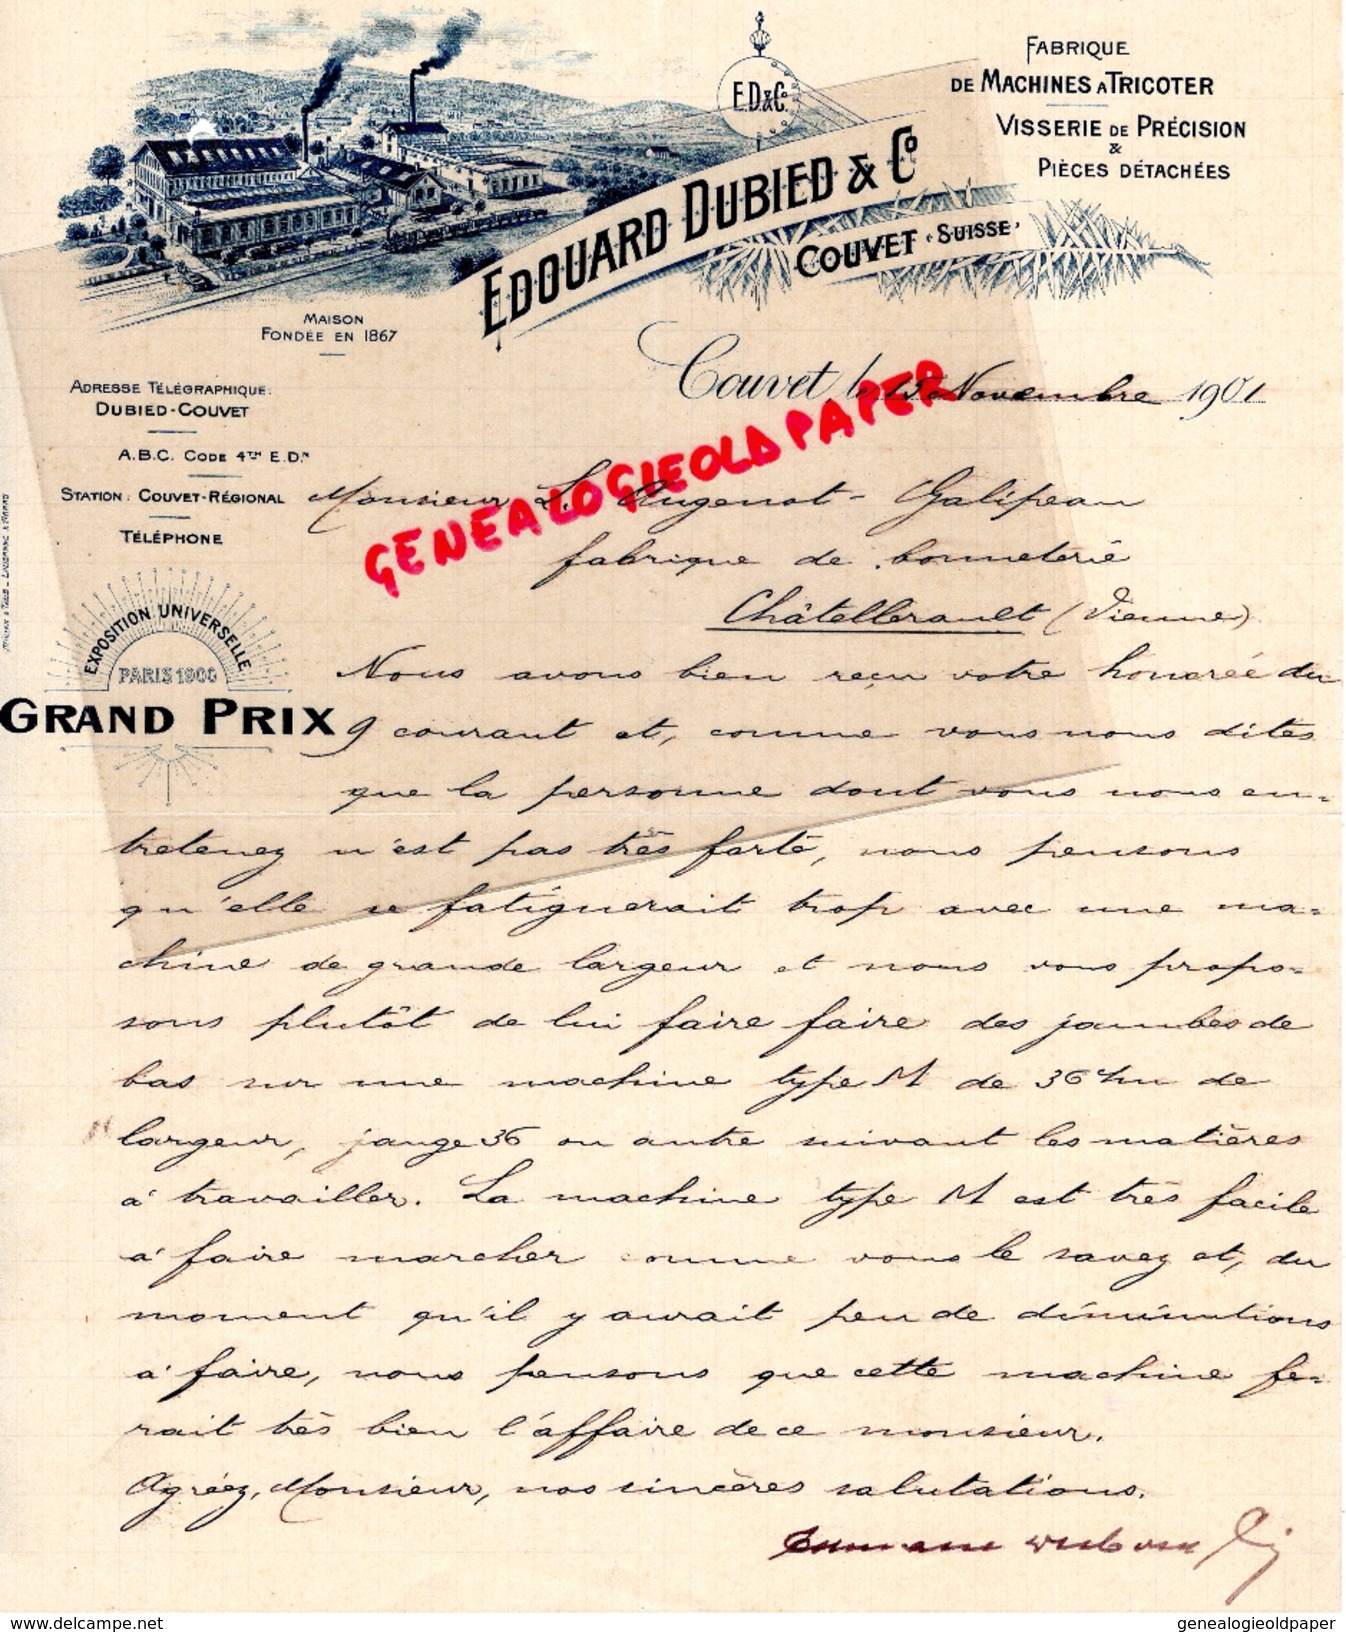 E.D.&Cº
FABRIQUE
DE MACHINES A TRICOTER
VISSERIE DE PRÉCISION
&
PIÈCES DÉTACHÉES
EDOUARD DUBIED & Cº
COUVET (SUISSE)
MAISON
FONDÉE EN 1867
ADRESSE TÉLÉGRAPHIQUE:
DUBIED-COUVET
A.B.C. CODE 4TH E.DN
STATION: COUVET-RÉGIONAL
TÉLÉPHONE
EXPOSITION UNIVERSELLE
PARIS 1900
GRAND PRIX
Couvet, le 15 Novembre 1901
GENEALOGIEOLDPAPER
Monsieur L. Augenot-Galipeau
fabrique de bonneterie
Châtellerault (Vienne)
Nous avons bien reçu votre honorée du
9 courant et, comme vous nous dites
que la personne dont vous nous en=
tretenez n'est pas très forte, nous pensons
qu'elle se fatiguerait trop avec une ma=
chine de grande largeur et nous vous propo=
sons plutôt de lui faire faire des jambes de
bas sur une machine type M de 36 c/m de
largeur, jauge 36 ou autre suivant les matières
à travailler. La machine type M est très facile
à faire marcher comme vous le savez et, du
moment qu'il y aurait peu de diminutions
à faire, nous pensons que cette machine fe=
rait très bien l'affaire de ce monsieur.
Agréez, Monsieur, nos sincères salutations.
genealogieoldpaper.delcampe.net
genealogieoldpaper